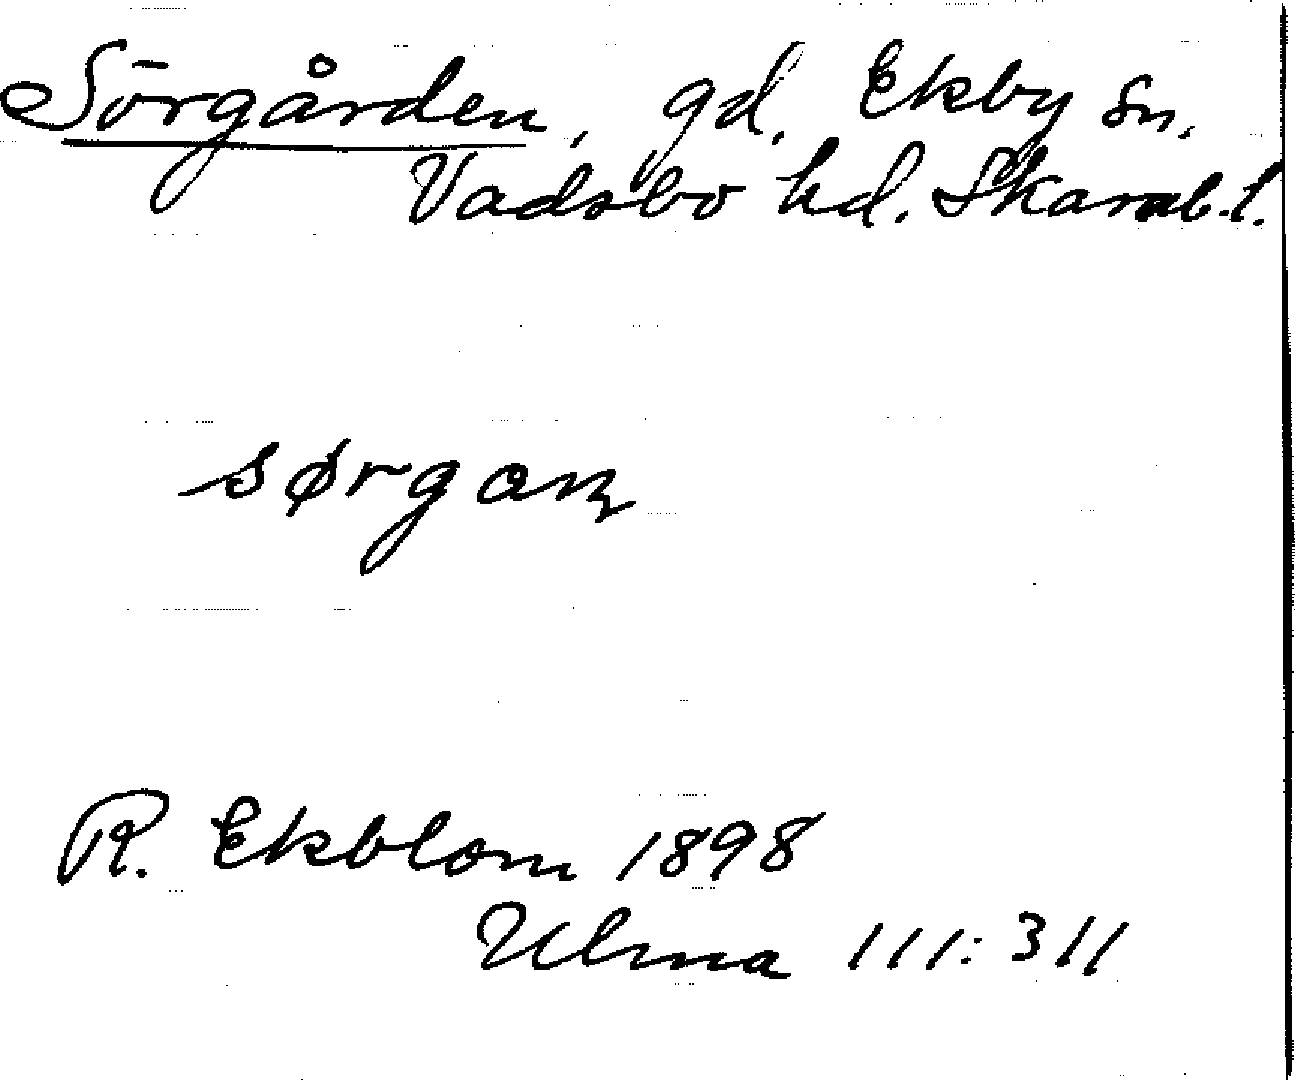 Sörgården, gd, Ekby sn,
Vadsbo hd. Skarab.l.
sørgaɳ
R. Ekblom 1898
Ulma 111:311